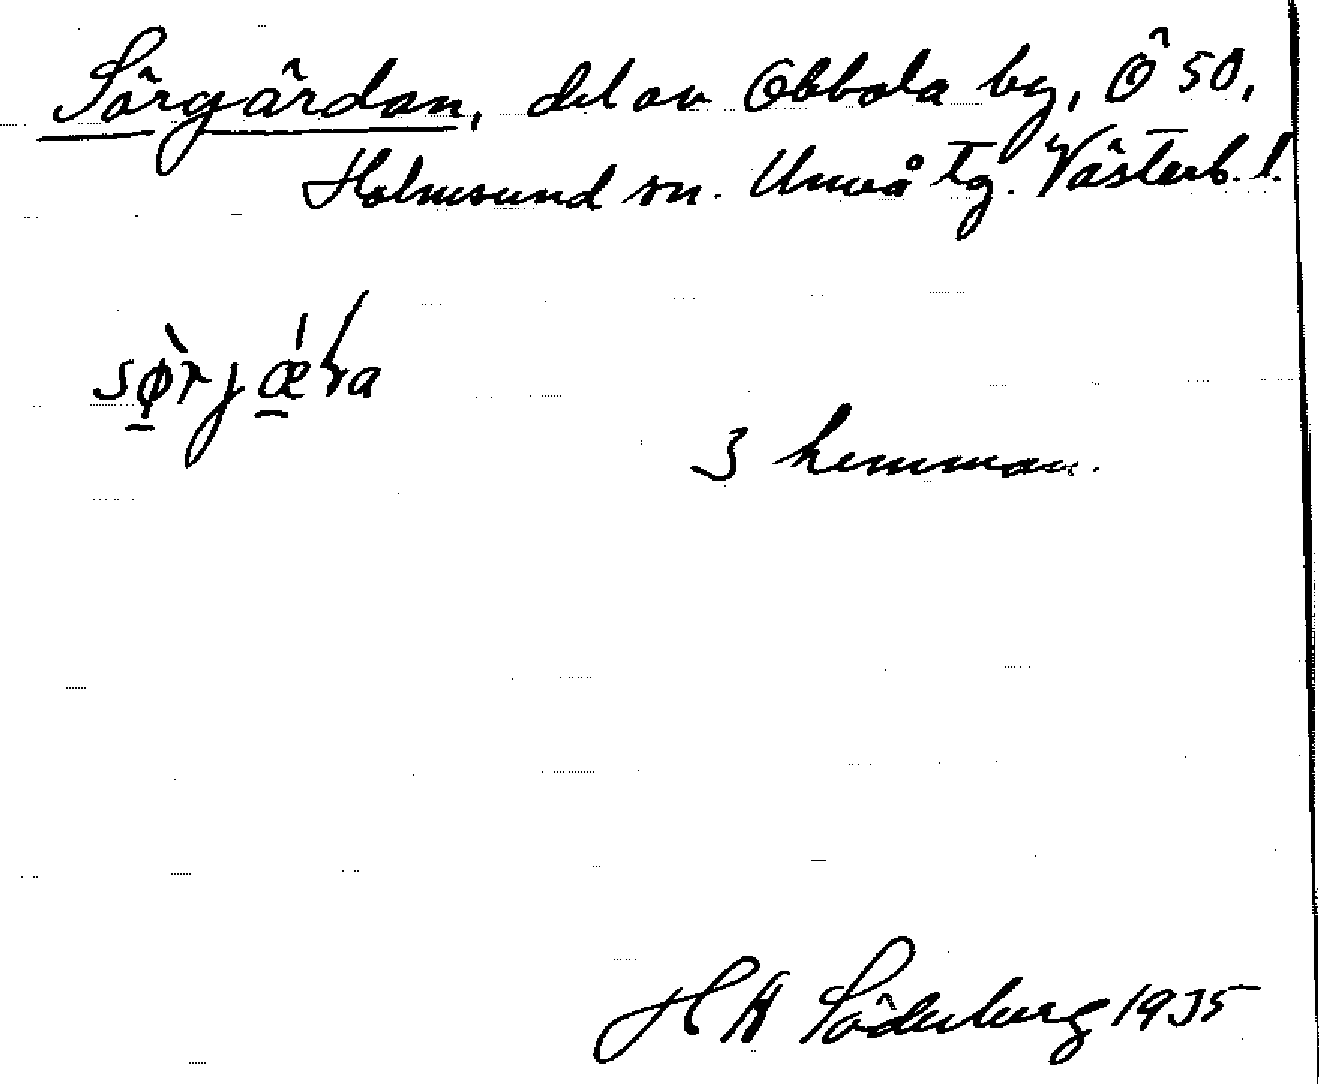 Sörgärdan, del av Obbola by, Ö 50,
Holmsund sn. Umeå tg. Västerb. l.
sø̠̀rjǽ̠ɽa
3 hemman.
H A Söderberg 1935